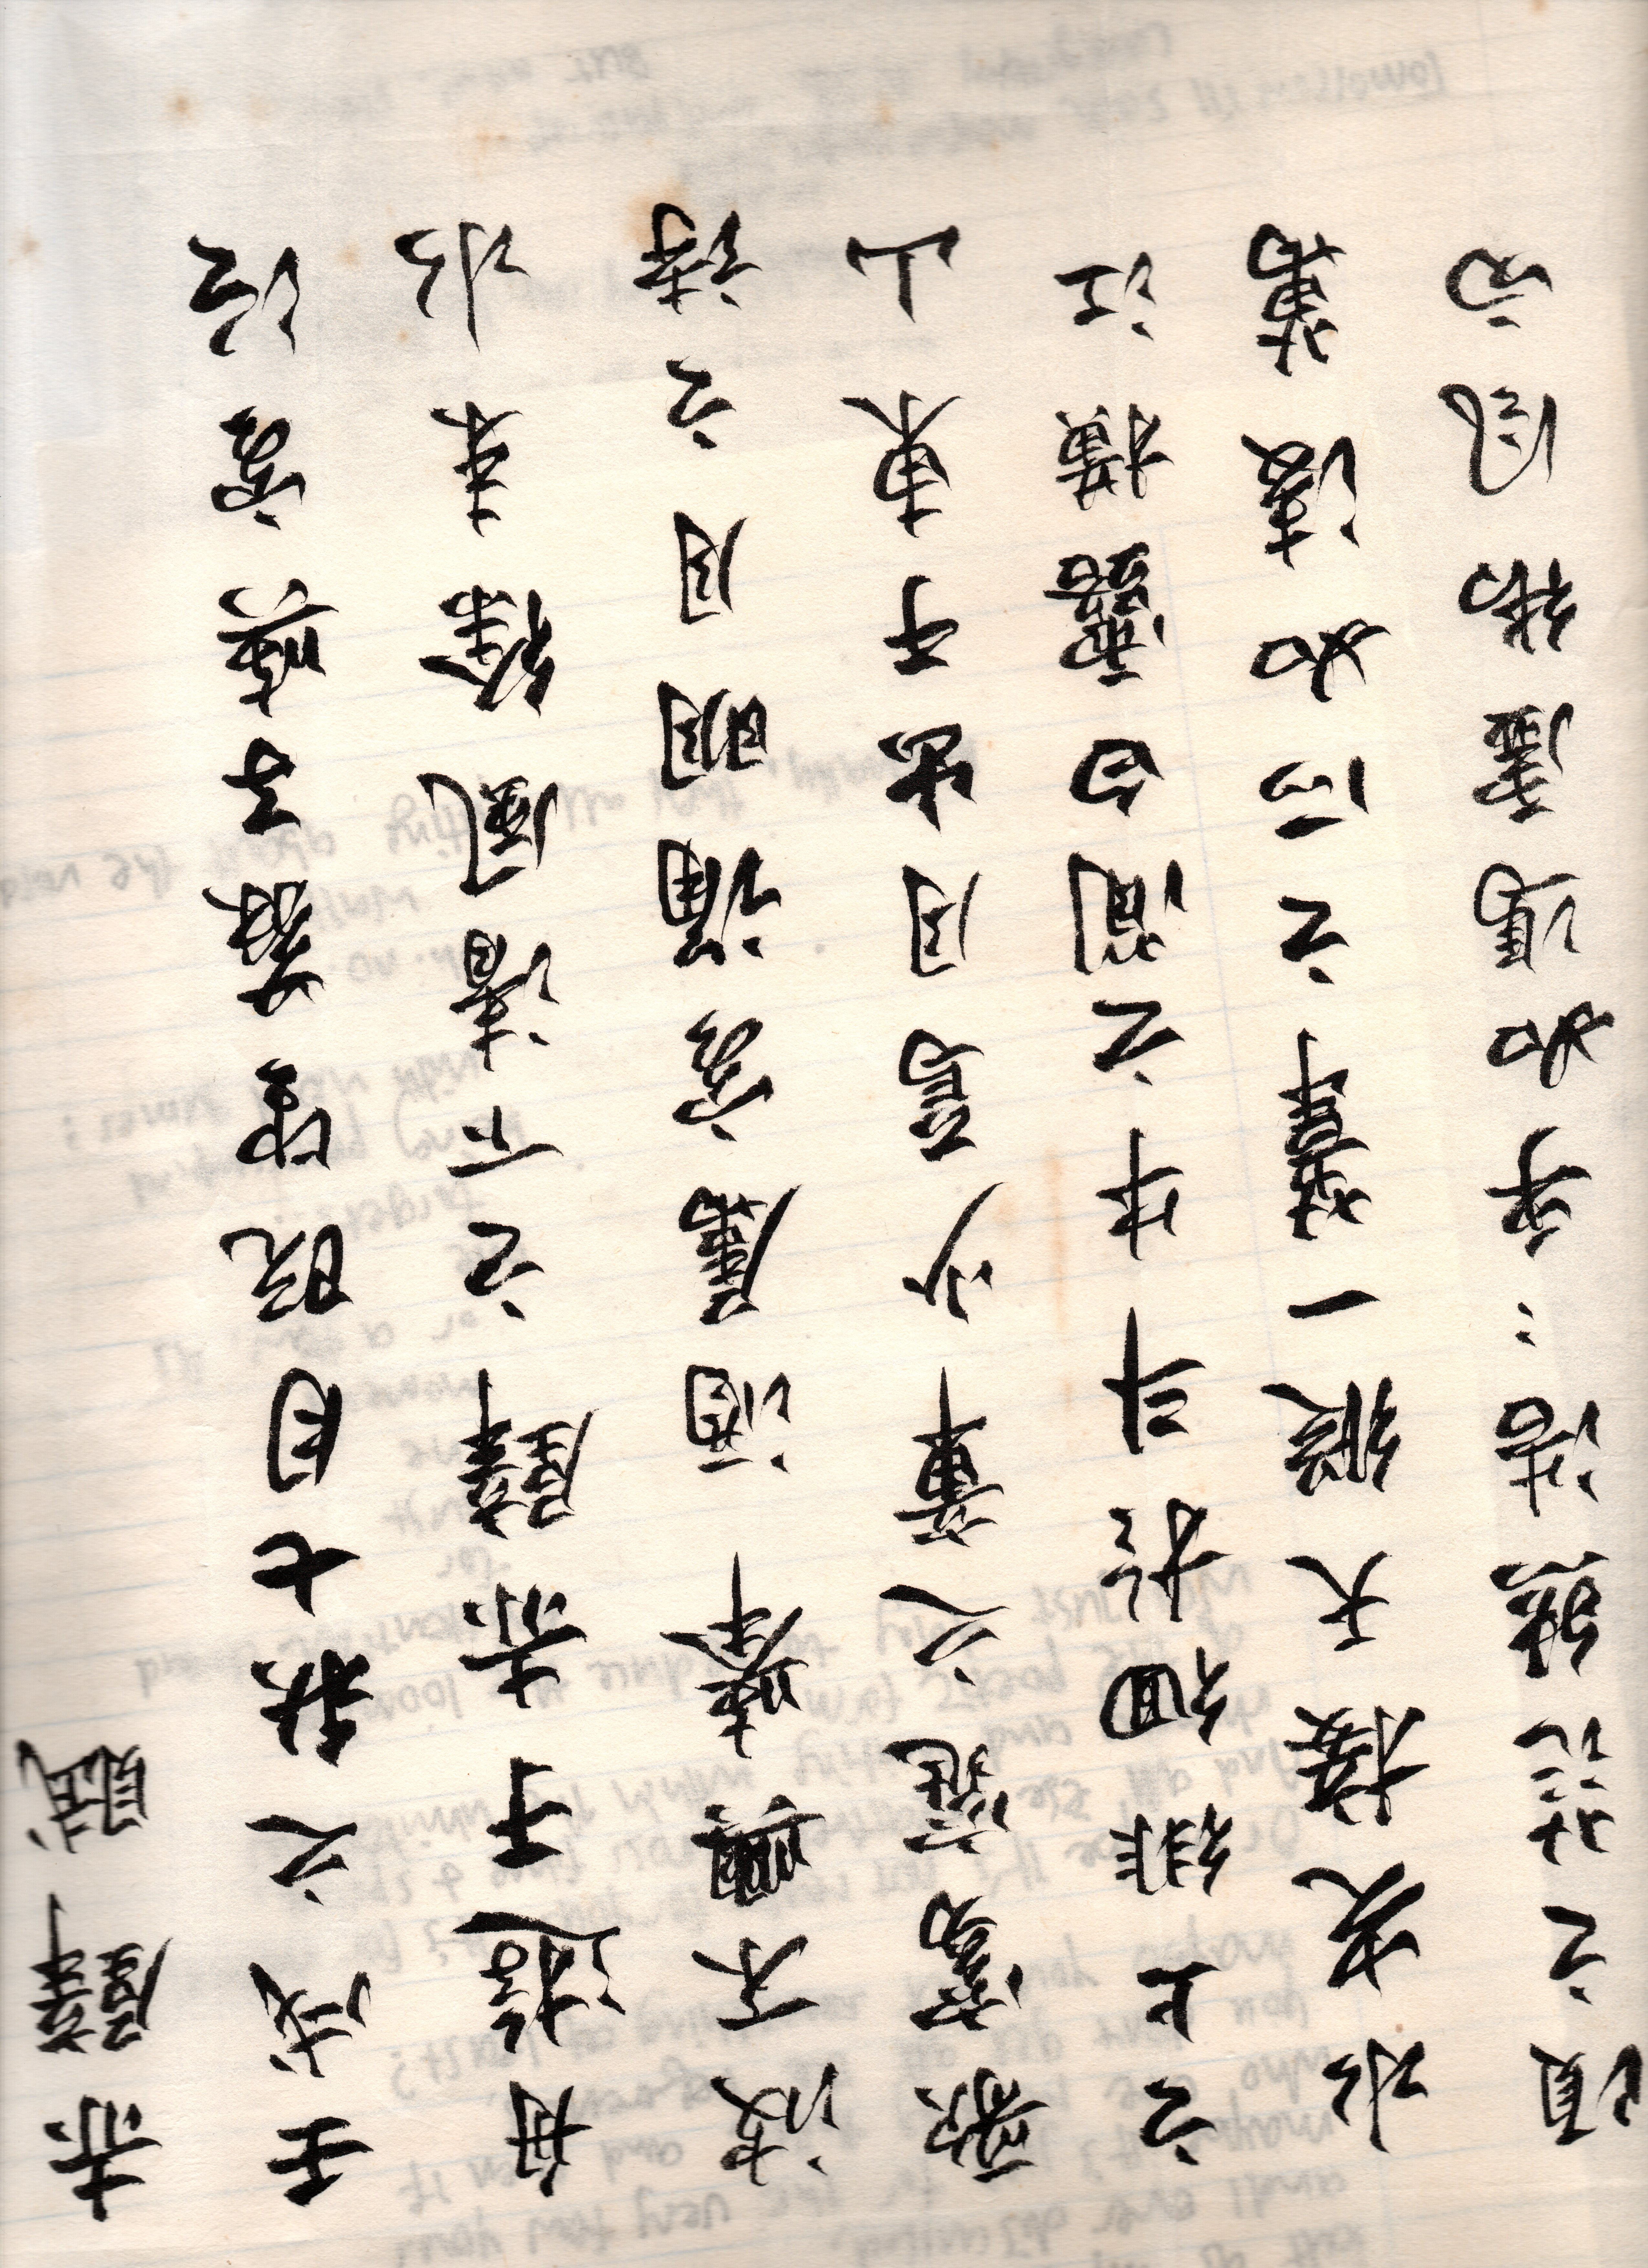 赤壁賦
壬戌之秋七月既望蘇子與客泛
舟遊于赤壁之下清風徐来水
波不興舉酒屬客誦明月之詩
歌窈窕之章少焉月出于東山
之上徘徊於斗牛之間白露橫江
水光接天縱一葦之所如凌萬
頃之茫然浩々乎如馮虛御風而